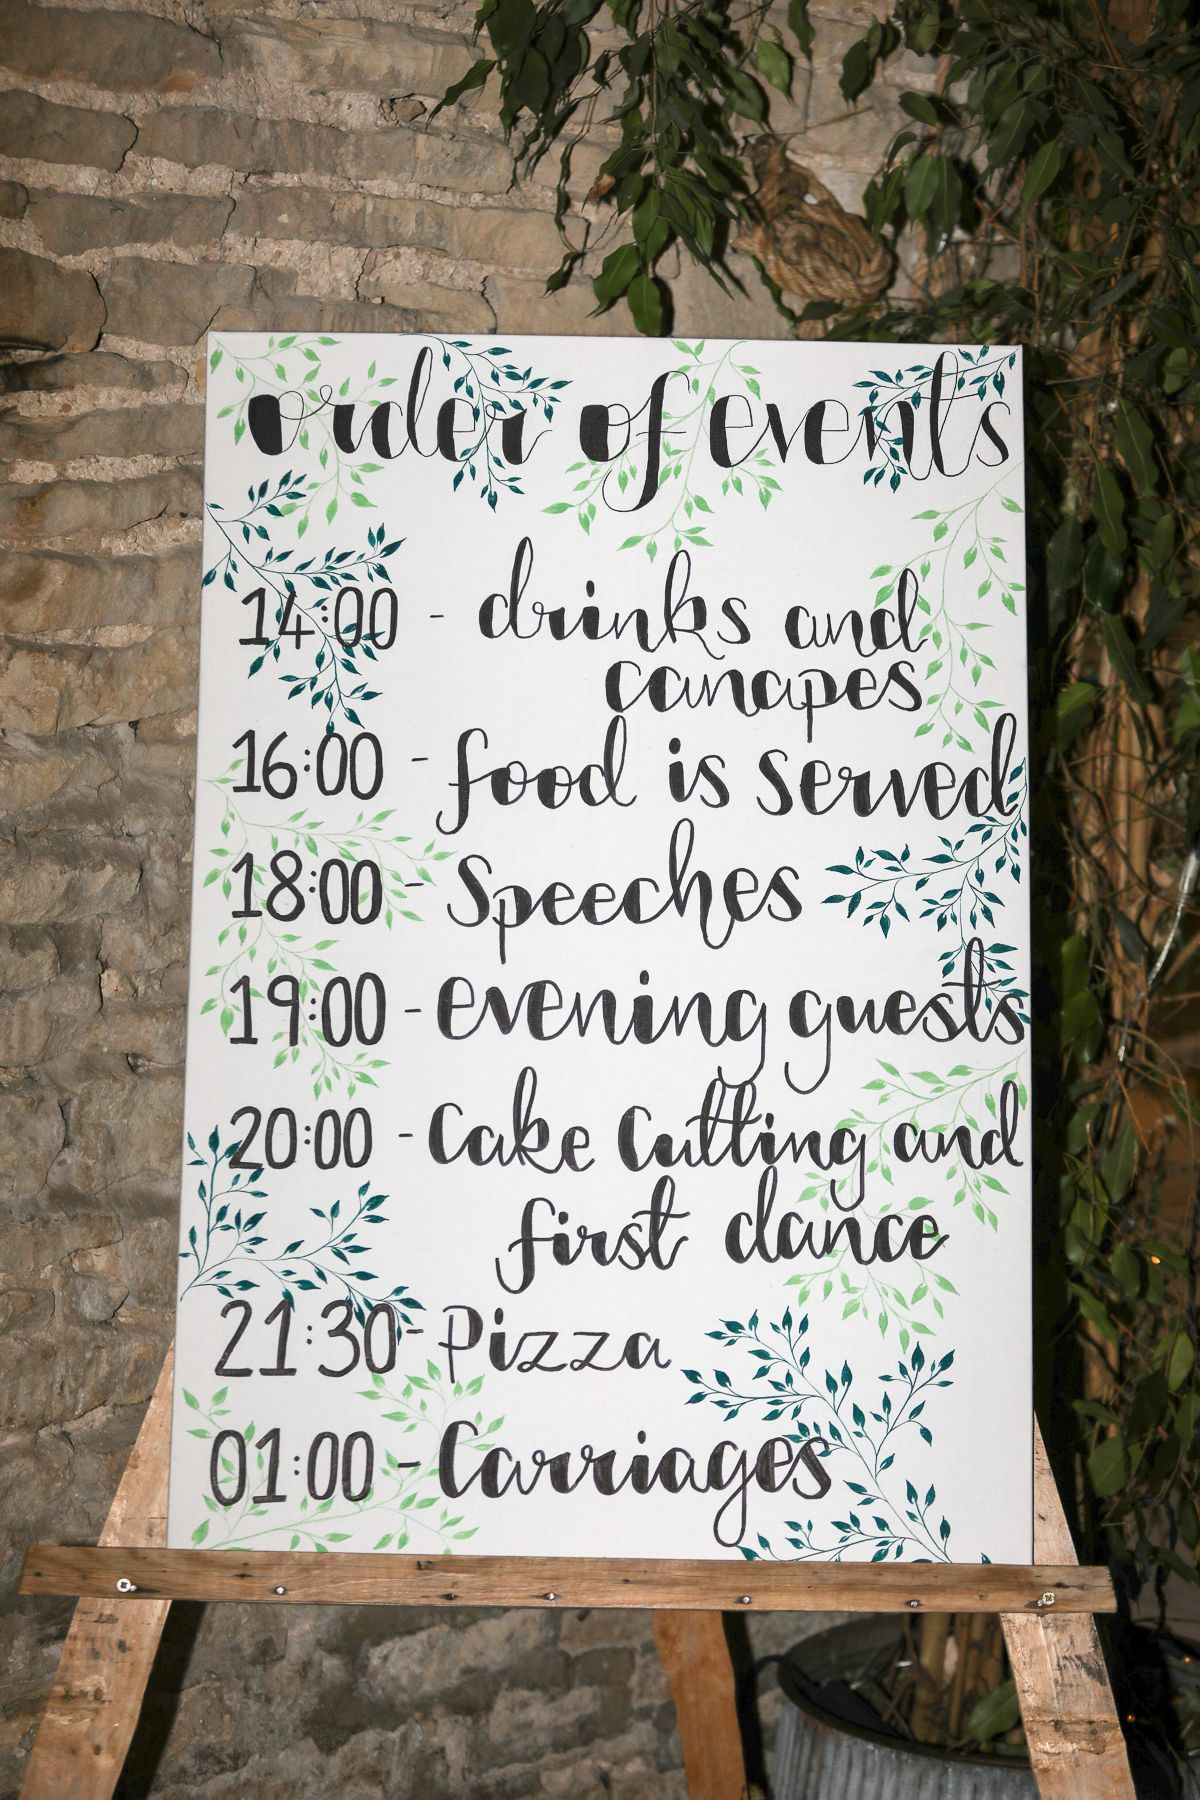 order of events
14:00 - drinks and
canapes
16:00 - food is served
18:00 - Speeches
19:00 - evening guests
20:00 - Cake Cutting and
first dance
21:30 - Pizza
01:00 - Carriages